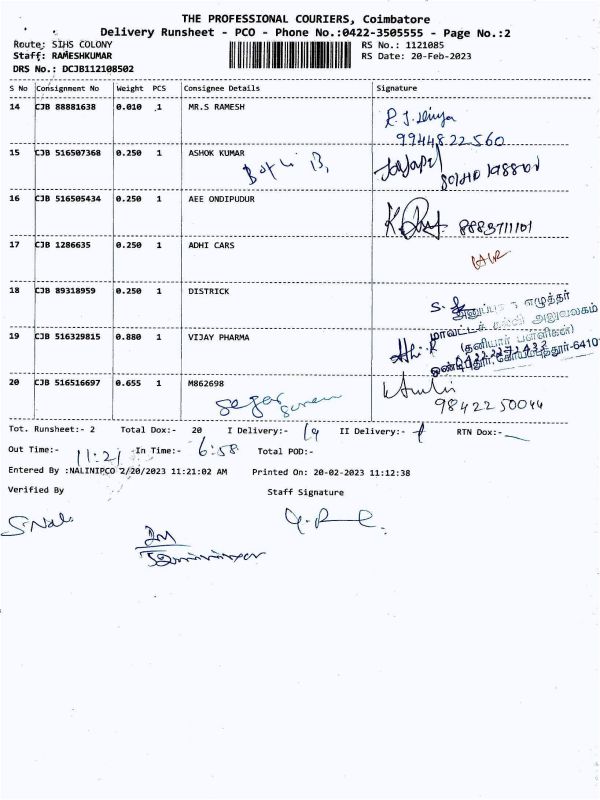 THE PROFESSIONAL COURIERS, Coimbatore
Delivery Runsheet - PCO - Phone No.:0422-3505555 - Page No.:2
Route: SIHS COLONY RS No.: 1121085
Staff: RAMESHKUMAR RS Date: 20-Feb-2023
DRS No.: DCJB112108502
S No Consignment No Weight PCS Consignee Details Signature
14 CJB 88881638 0.010 1 MR.S RAMESH
9944822560
15 CJB 516507368 0.250 1 ASHOK KUMAR
16 CJB 516505434 0.250 1 AEE ONDIPUDUR
8883711101
17 CJB 1286635 0.250 1 ADHI CARS
18 CJB 89318959 0.250 1 DISTRICK
எழுத்தர்
மாவட்டக் கல்வி அலுவலகம்
19 CJB 516329815 0.880 1 VIJAY PHARMA
(தனியார் பள்ளிகள்)
20 CJB 516516697 0.655 1 M862698
98422 50044
Tot. Runsheet:- 2 Total Dox:- 20 I Delivery:- 19 II Delivery:- RTN Dox:-
Out Time:- 11:21 In Time:- 6:58 Total POD:-
Entered By :NALINIPCO 2/20/2023 11:21:02 AM Printed On: 20-02-2023 11:12:38
Verified By Staff Signature